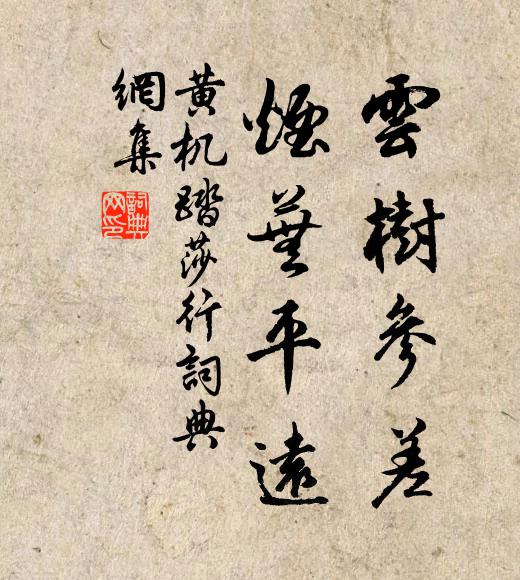 雲樹參差
煙蕪平遠
黄机踏莎行詞典
網集
詞典
网印